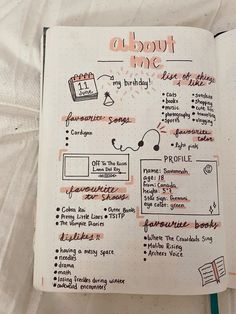 about
me
11
June
my birthday!
list of things
i like
• cats
• books
• music
• photography
• sports
• sunshine
• shopping
• cute
• travelling
• vlogging
favourite songs
• Cardigan
favourite
color
• light pink
Off To The Races
Lana Del Rey
PROFILE
name: Savannah
age: 18
from: Canada
height: 5'7
star sign: Gemini
eye color: green
favourite
tv shows
• Cobra Kai
• Pretty Little Liars
• The Vampire Diaries
• Outer Banks
• TSITP
dislikes!!
• having a messy space
• needles
• drama
• math
• losing friends during winter
• awkward encounters
favourite books
• Where The Crawdads Sing
• Malibu Rising
• Archers Voice